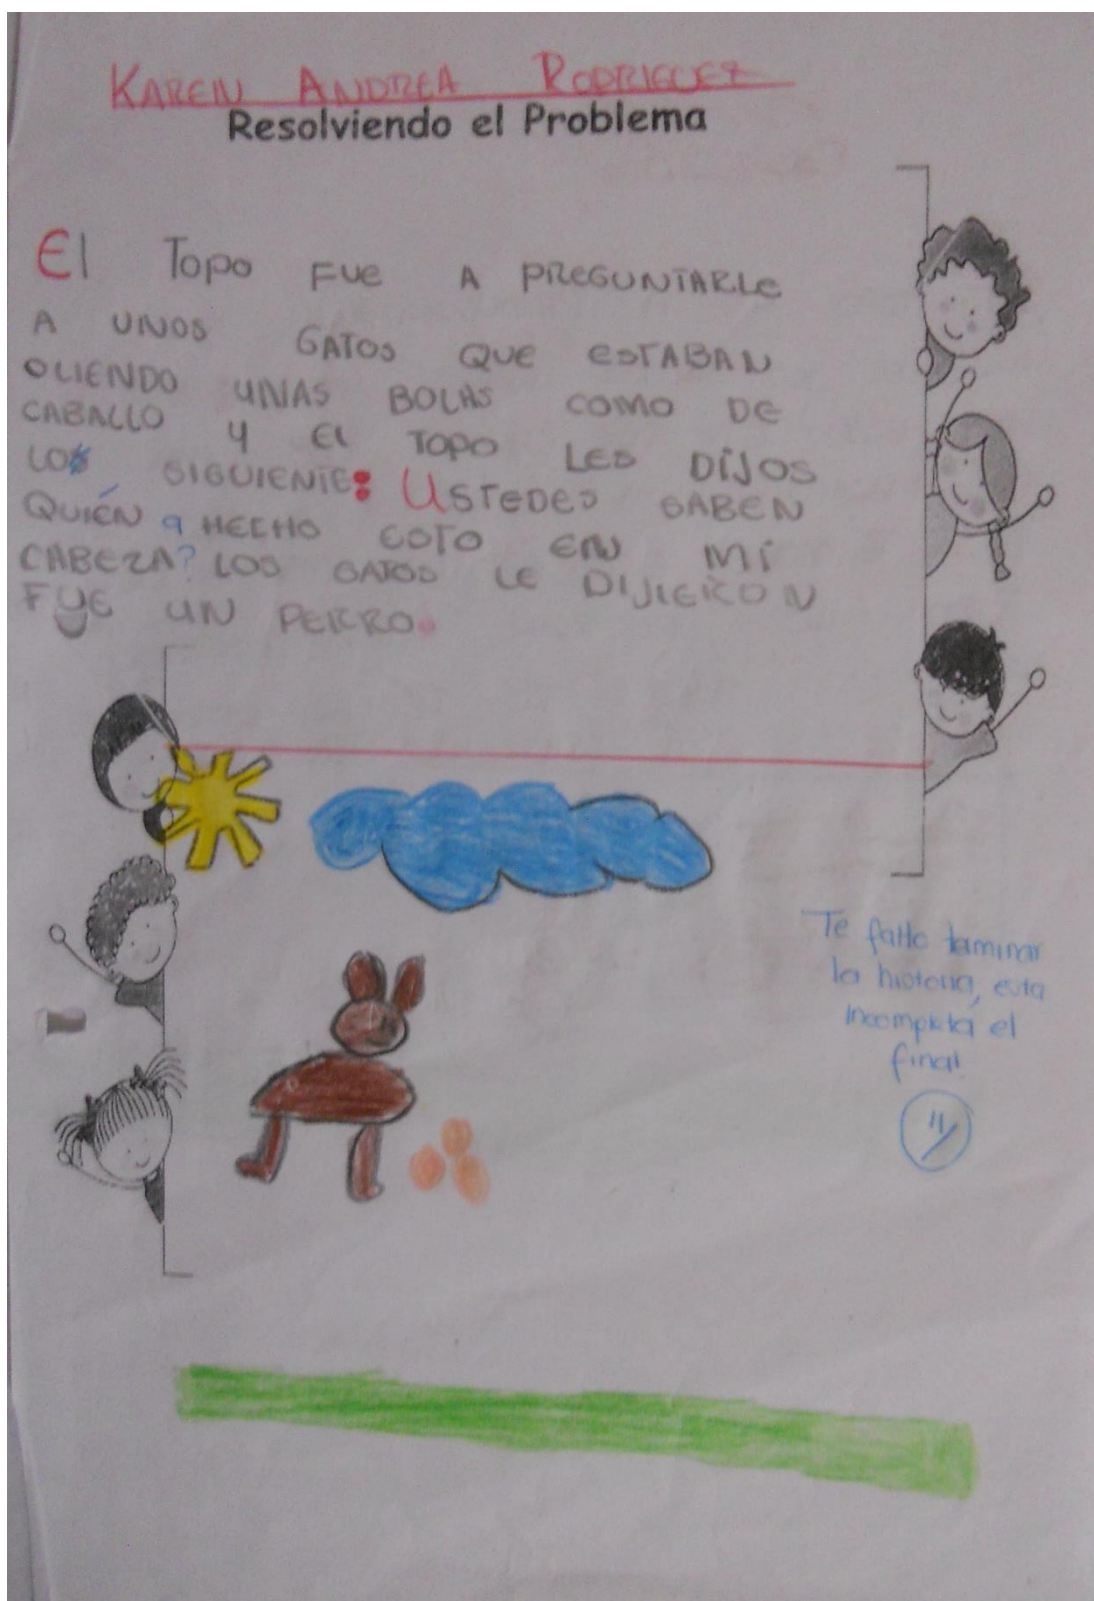 KAREN ANDREA RODRIGUEZ
Resolviendo el Problema
El Topo FUE A PREGUNTARLE
A UNOS GATOS QUE ESTABAN
OLIENDO UNAS BOLAS COMO DE
CABALLO Y El TOPO LES DIJOS
LOS SIGUIENTE: USTEDES SABEN
QUIÉN a HECHO ESTO EN MI
CABEZA? LOS GATOS LE DIJIERON
FUE UN PERRO.
Te falto taminar
la historia, esta
incompleta el
final.